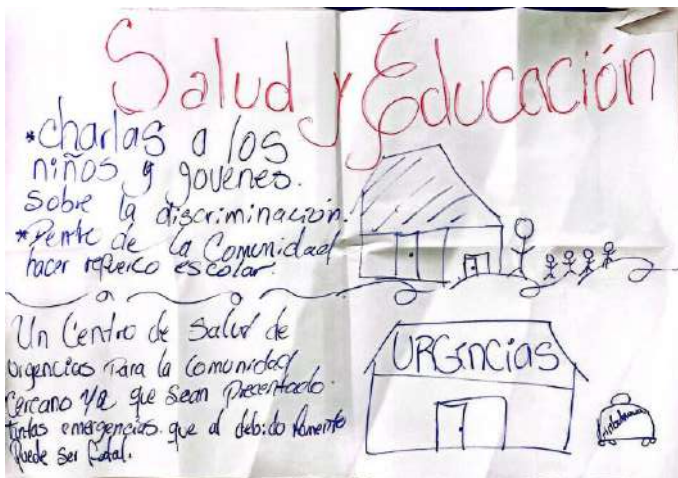 Salud y Educación
*charlas a los
niños y jovenes.
Sobre la discriminación.
*Dentro de la Comunidad
hacer refuerco escolar.
Un Centro de Salud de
urgencias Para la Comunidad
Cercano ya que sean Presentado
tantas emergencias que al debido
Puede Ser fatal.
URGincias